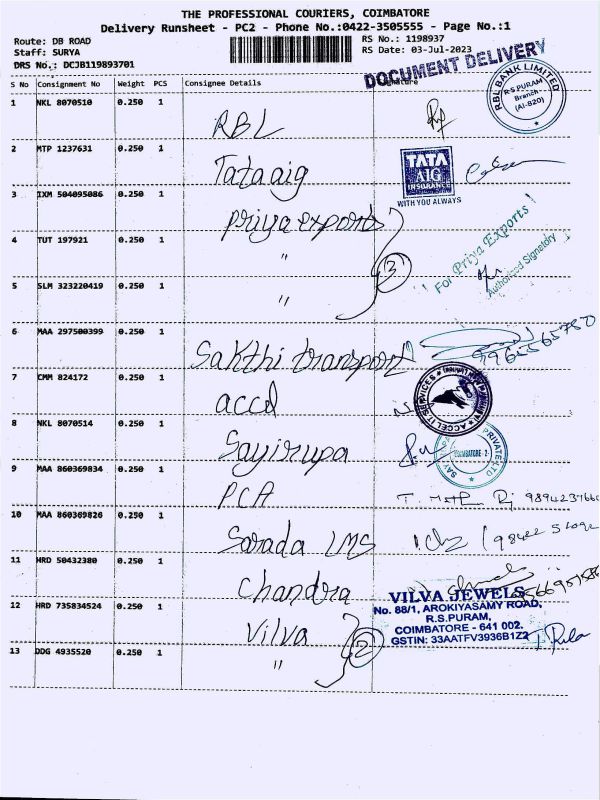 THE PROFESSIONAL COURIERS, COIMBATORE
Delivery Runsheet - PC2 - Phone No.:0422-3505555 - Page No.:1
Route: DB ROAD
RS No.: 1198937
Staff: SURYA
RS Date: 03-Jul-2023
DRS No.: DCJB119893701
DOCUMENT DELIVERY
S No Consignment No Weight PCS Consignee Details Signature
RBL BANK LIMITED
R S PURAM
Branch
(AI-820)
1 NKL 8070510 0.250 1 RBL
2 MTP 1237631 0.250 1 Tata aig
TATA
AIG
INSURANCE
WITH YOU ALWAYS
3 IXM 504095086 0.250 1 priya exports
4 TUT 197921 0.250 1 "
3
For Priya Exports
Authorised Signatory
5 SLM 323220419 0.250 1 "
6 MAA 297500399 0.250 1 Sakthi transport
7 CMM 824172 0.250 1 accel
ACCEL IT SERVICES
8 NKL 8070514 0.250 1 Sayirupa
COIMBATORE - 2
9 MAA 860369834 0.250 1 PCA
10 MAA 860369826 0.250 1 Sarada LMS
11 HRD 50432380 0.250 1 Chandra
12 HRD 735834524 0.250 1 Vilva
13 DDG 4935520 0.250 1 "
2
VILVA JEWELS
No. 88/1, AROKIYASAMY ROAD,
R.S.PURAM,
COIMBATORE - 641 002.
GSTIN: 33AATFV3936B1Z2